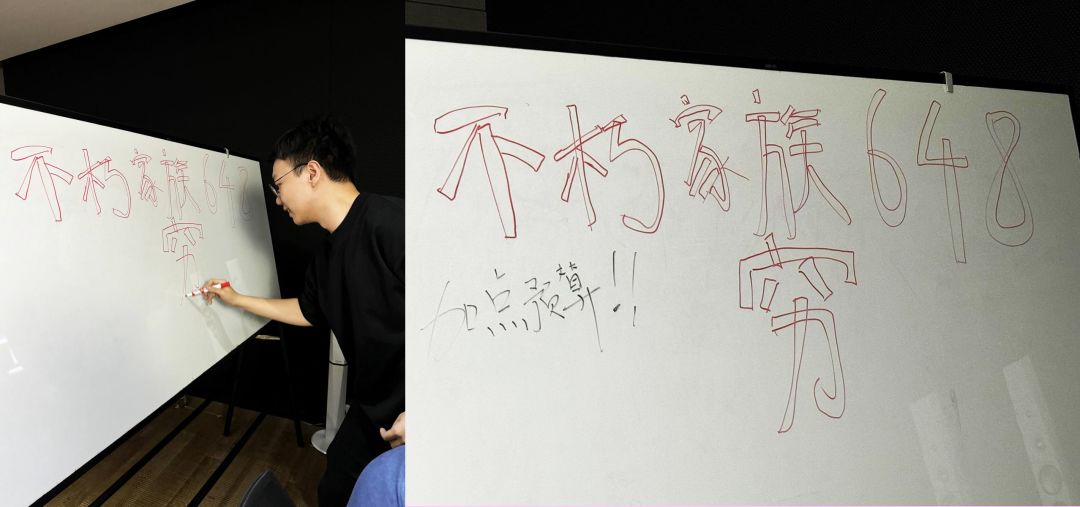 不朽家族648
穷
不朽家族648
穷
加点预算!!